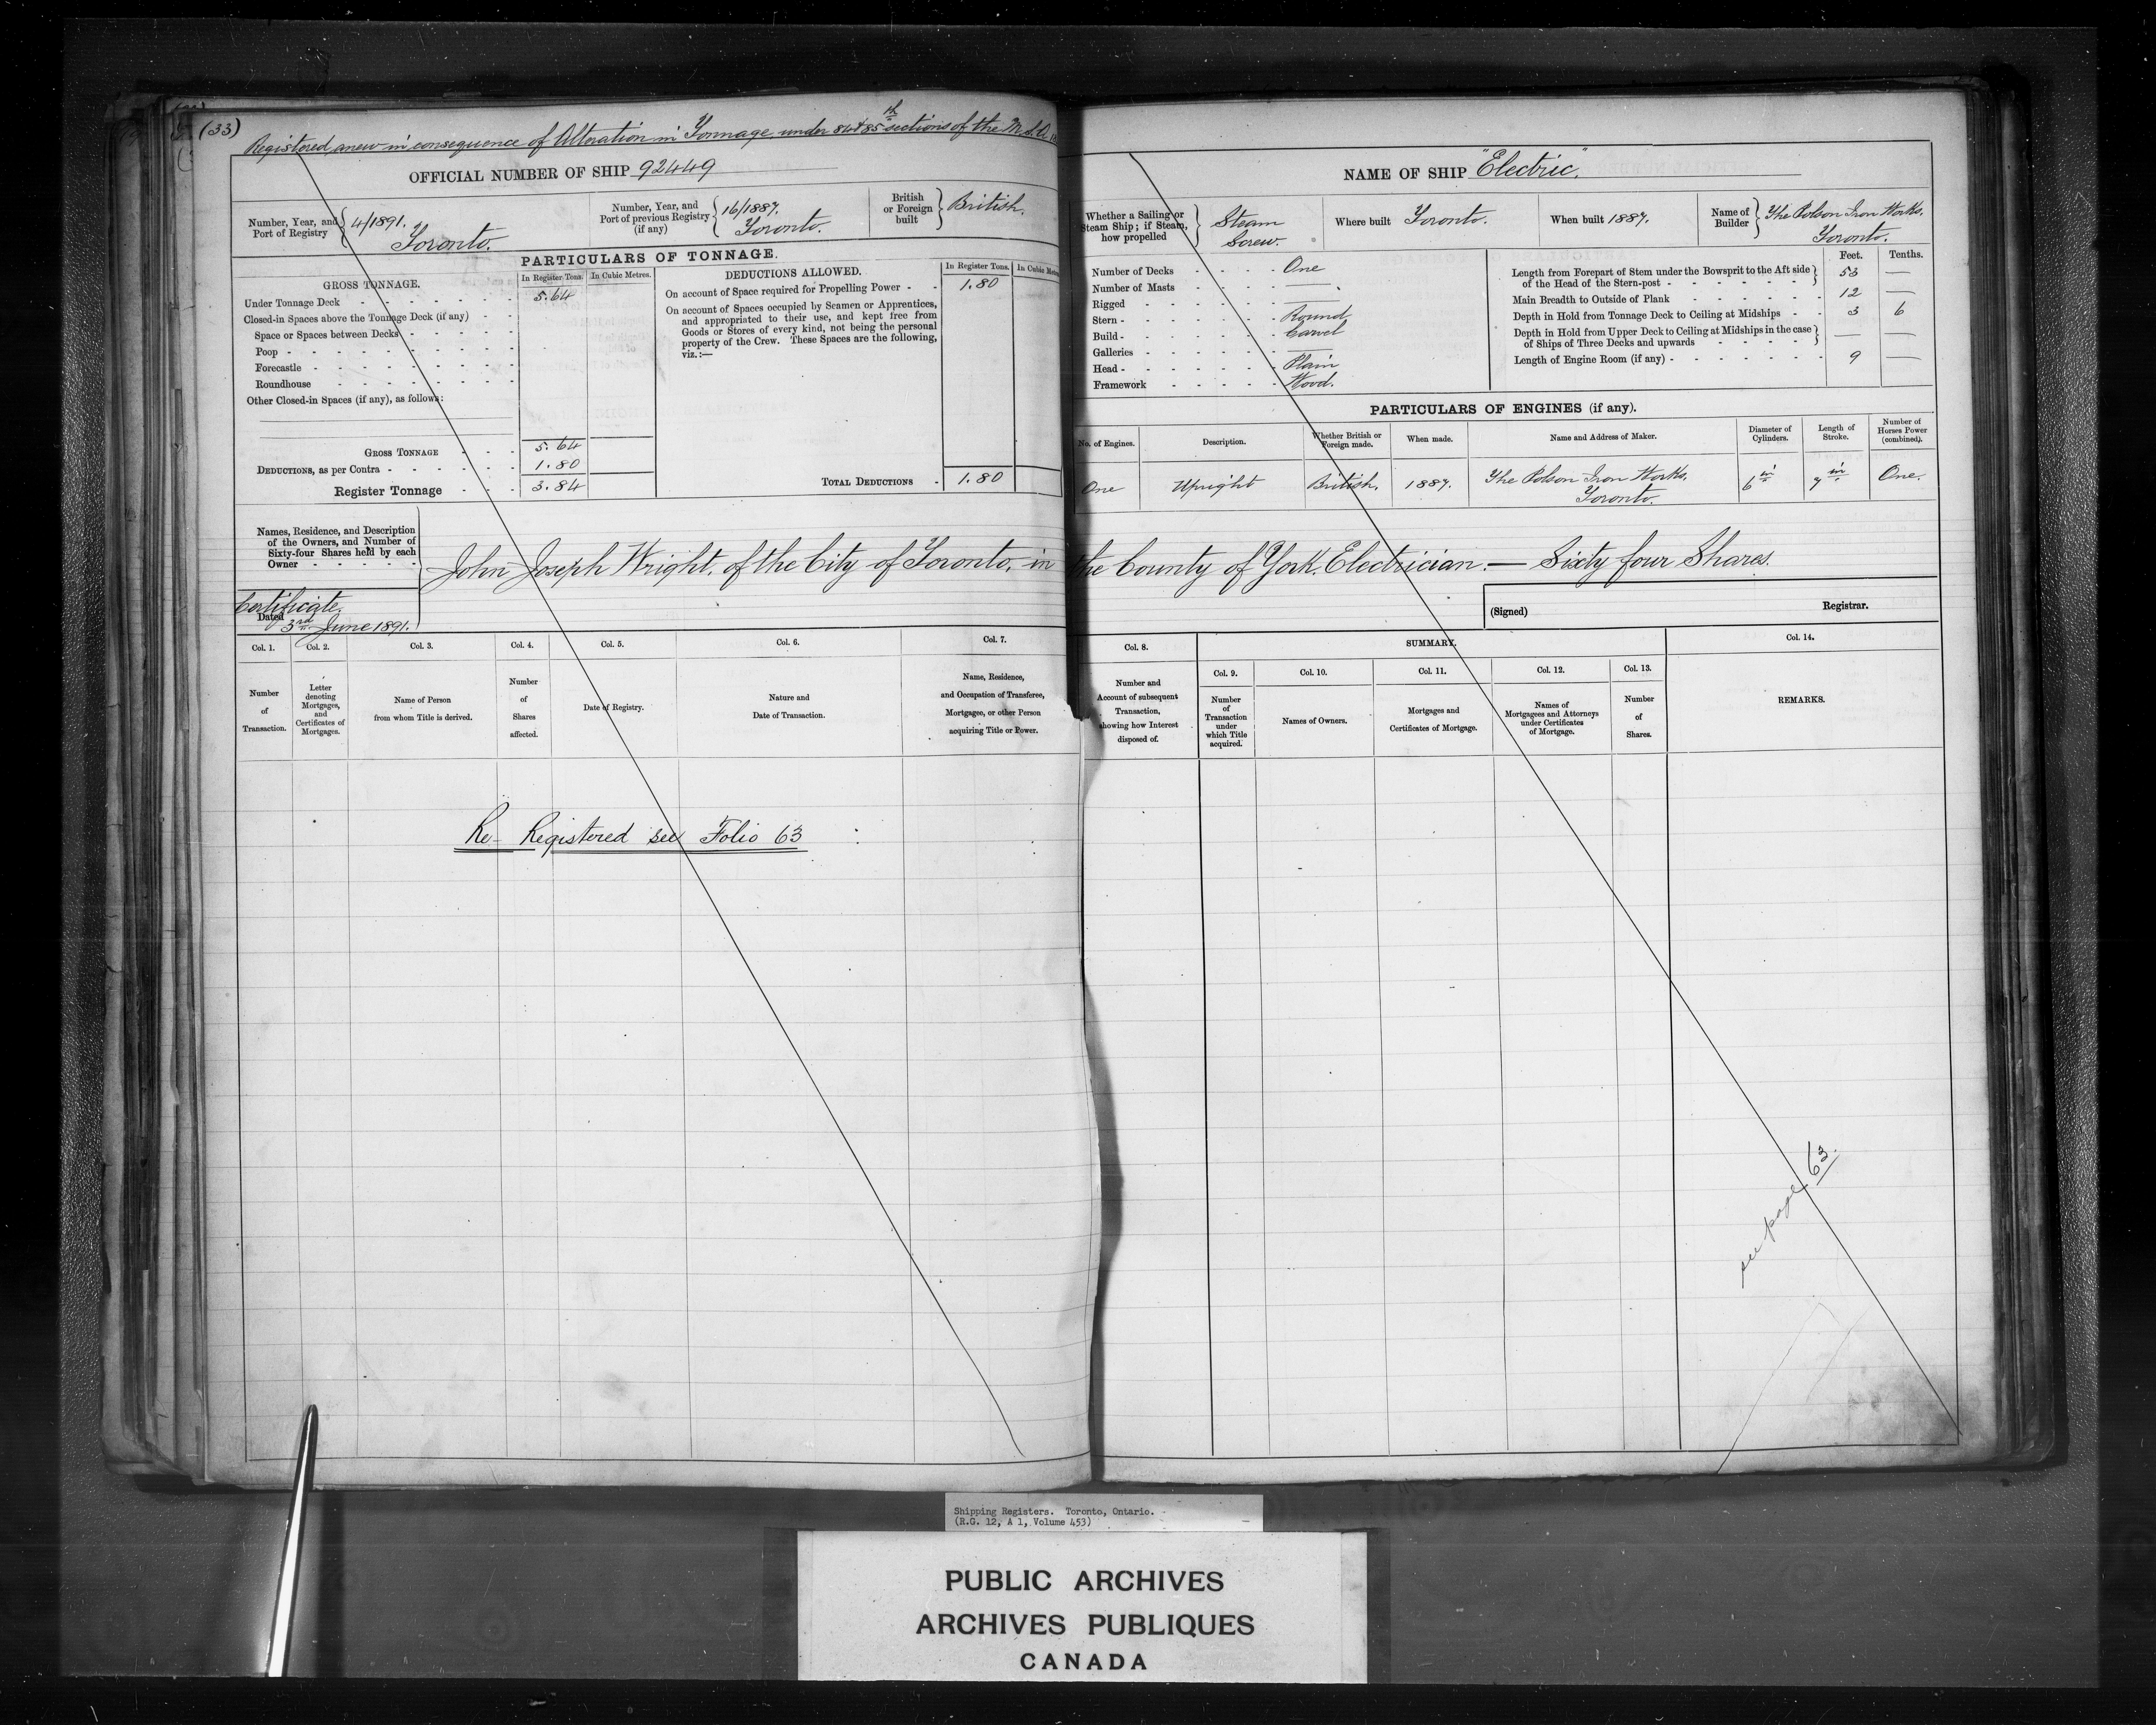 (33)
Registered anew in consequence of Alteration in Tonnage under 84 & 85th sections of the M.S.A.
OFFICIAL NUMBER OF SHIP 92449
Number, Year, and Port of Registry 4/1891. Toronto.
Number, Year, and Port of previous Registry (if any) 16/1887. Toronto.
British or Foreign built British.
PARTICULARS OF TONNAGE.
GROSS TONNAGE. In Register Tons. In Cubic Metres.
Under Tonnage Deck 5.64
Closed-in Spaces above the Tonnage Deck (if any)
Space or Spaces between Decks
Poop
Forecastle
Roundhouse
Other Closed-in Spaces (if any), as follows:
GROSS TONNAGE 5.64
DEDUCTIONS, as per Contra 1.80
Register Tonnage 3.84
DEDUCTIONS ALLOWED. In Register Tons.
On account of Space required for Propelling Power 1.80
On account of Spaces occupied by Seamen or Apprentices,
and appropriated to their use, and kept free from
Goods or Stores of every kind, not being the personal
property of the Crew. These Spaces are the following,
viz.:—
TOTAL DEDUCTIONS 1.80
NAME OF SHIP "Electric".
Whether a Sailing or Steam Ship; if Steam, how propelled Steam Screw.
Where built Toronto.
When built 1887.
Name of Builder The Polson Iron Works, Toronto.
Number of Decks One
Number of Masts —
Rigged —
Stern Round
Build Carvel
Galleries —
Head Plain
Framework Wood.
Feet. Tenths.
Length from Forepart of Stem under the Bowsprit to the Aft side
of the Head of the Stern-post 53 —
Main Breadth to Outside of Plank 12 —
Depth in Hold from Tonnage Deck to Ceiling at Midships 3 6
Depth in Hold from Upper Deck to Ceiling at Midships in the case
of Ships of Three Decks and upwards — —
Length of Engine Room (if any) 9 —
PARTICULARS OF ENGINES (if any).
No. of Engines. Description. Whether British or Foreign made. When made. Name and Address of Maker. Diameter of Cylinders. Length of Stroke. Number of Horses Power (combined).
One Upright British. 1887. The Polson Iron Works, Toronto. 6 in 7 in One.
Names, Residence, and Description
of the Owners, and Number of
Sixty-four Shares held by each
Owner
John Joseph Wright, of the City of Toronto, in the County of York, Electrician. — Sixty four Shares.
Certificate.
Dated 3rd June 1891.
(Signed) Registrar.
Col. 1. Col. 2. Col. 3. Col. 4. Col. 5. Col. 6. Col. 7.
Number of Transaction.
Letter denoting Mortgages, and Certificates of Mortgages.
Name of Person from whom Title is derived.
Number of Shares affected.
Date of Registry.
Nature and Date of Transaction.
Name, Residence, and Occupation of Transferee, Mortgagee, or other Person acquiring Title or Power.
Col. 8. SUMMARY. Col. 14.
Col. 9. Col. 10. Col. 11. Col. 12. Col. 13.
Number and Account of subsequent Transaction, showing how Interest disposed of.
Number of Transaction under which Title acquired.
Names of Owners.
Mortgages and Certificates of Mortgage.
Names of Mortgagees and Attorneys under Certificates of Mortgage.
Number of Shares.
REMARKS.
Re-Registered see Folio 63
see page 63.
Shipping Registers. Toronto, Ontario.
(R.G. 12, A 1, Volume 453)
PUBLIC ARCHIVES
ARCHIVES PUBLIQUES
CANADA